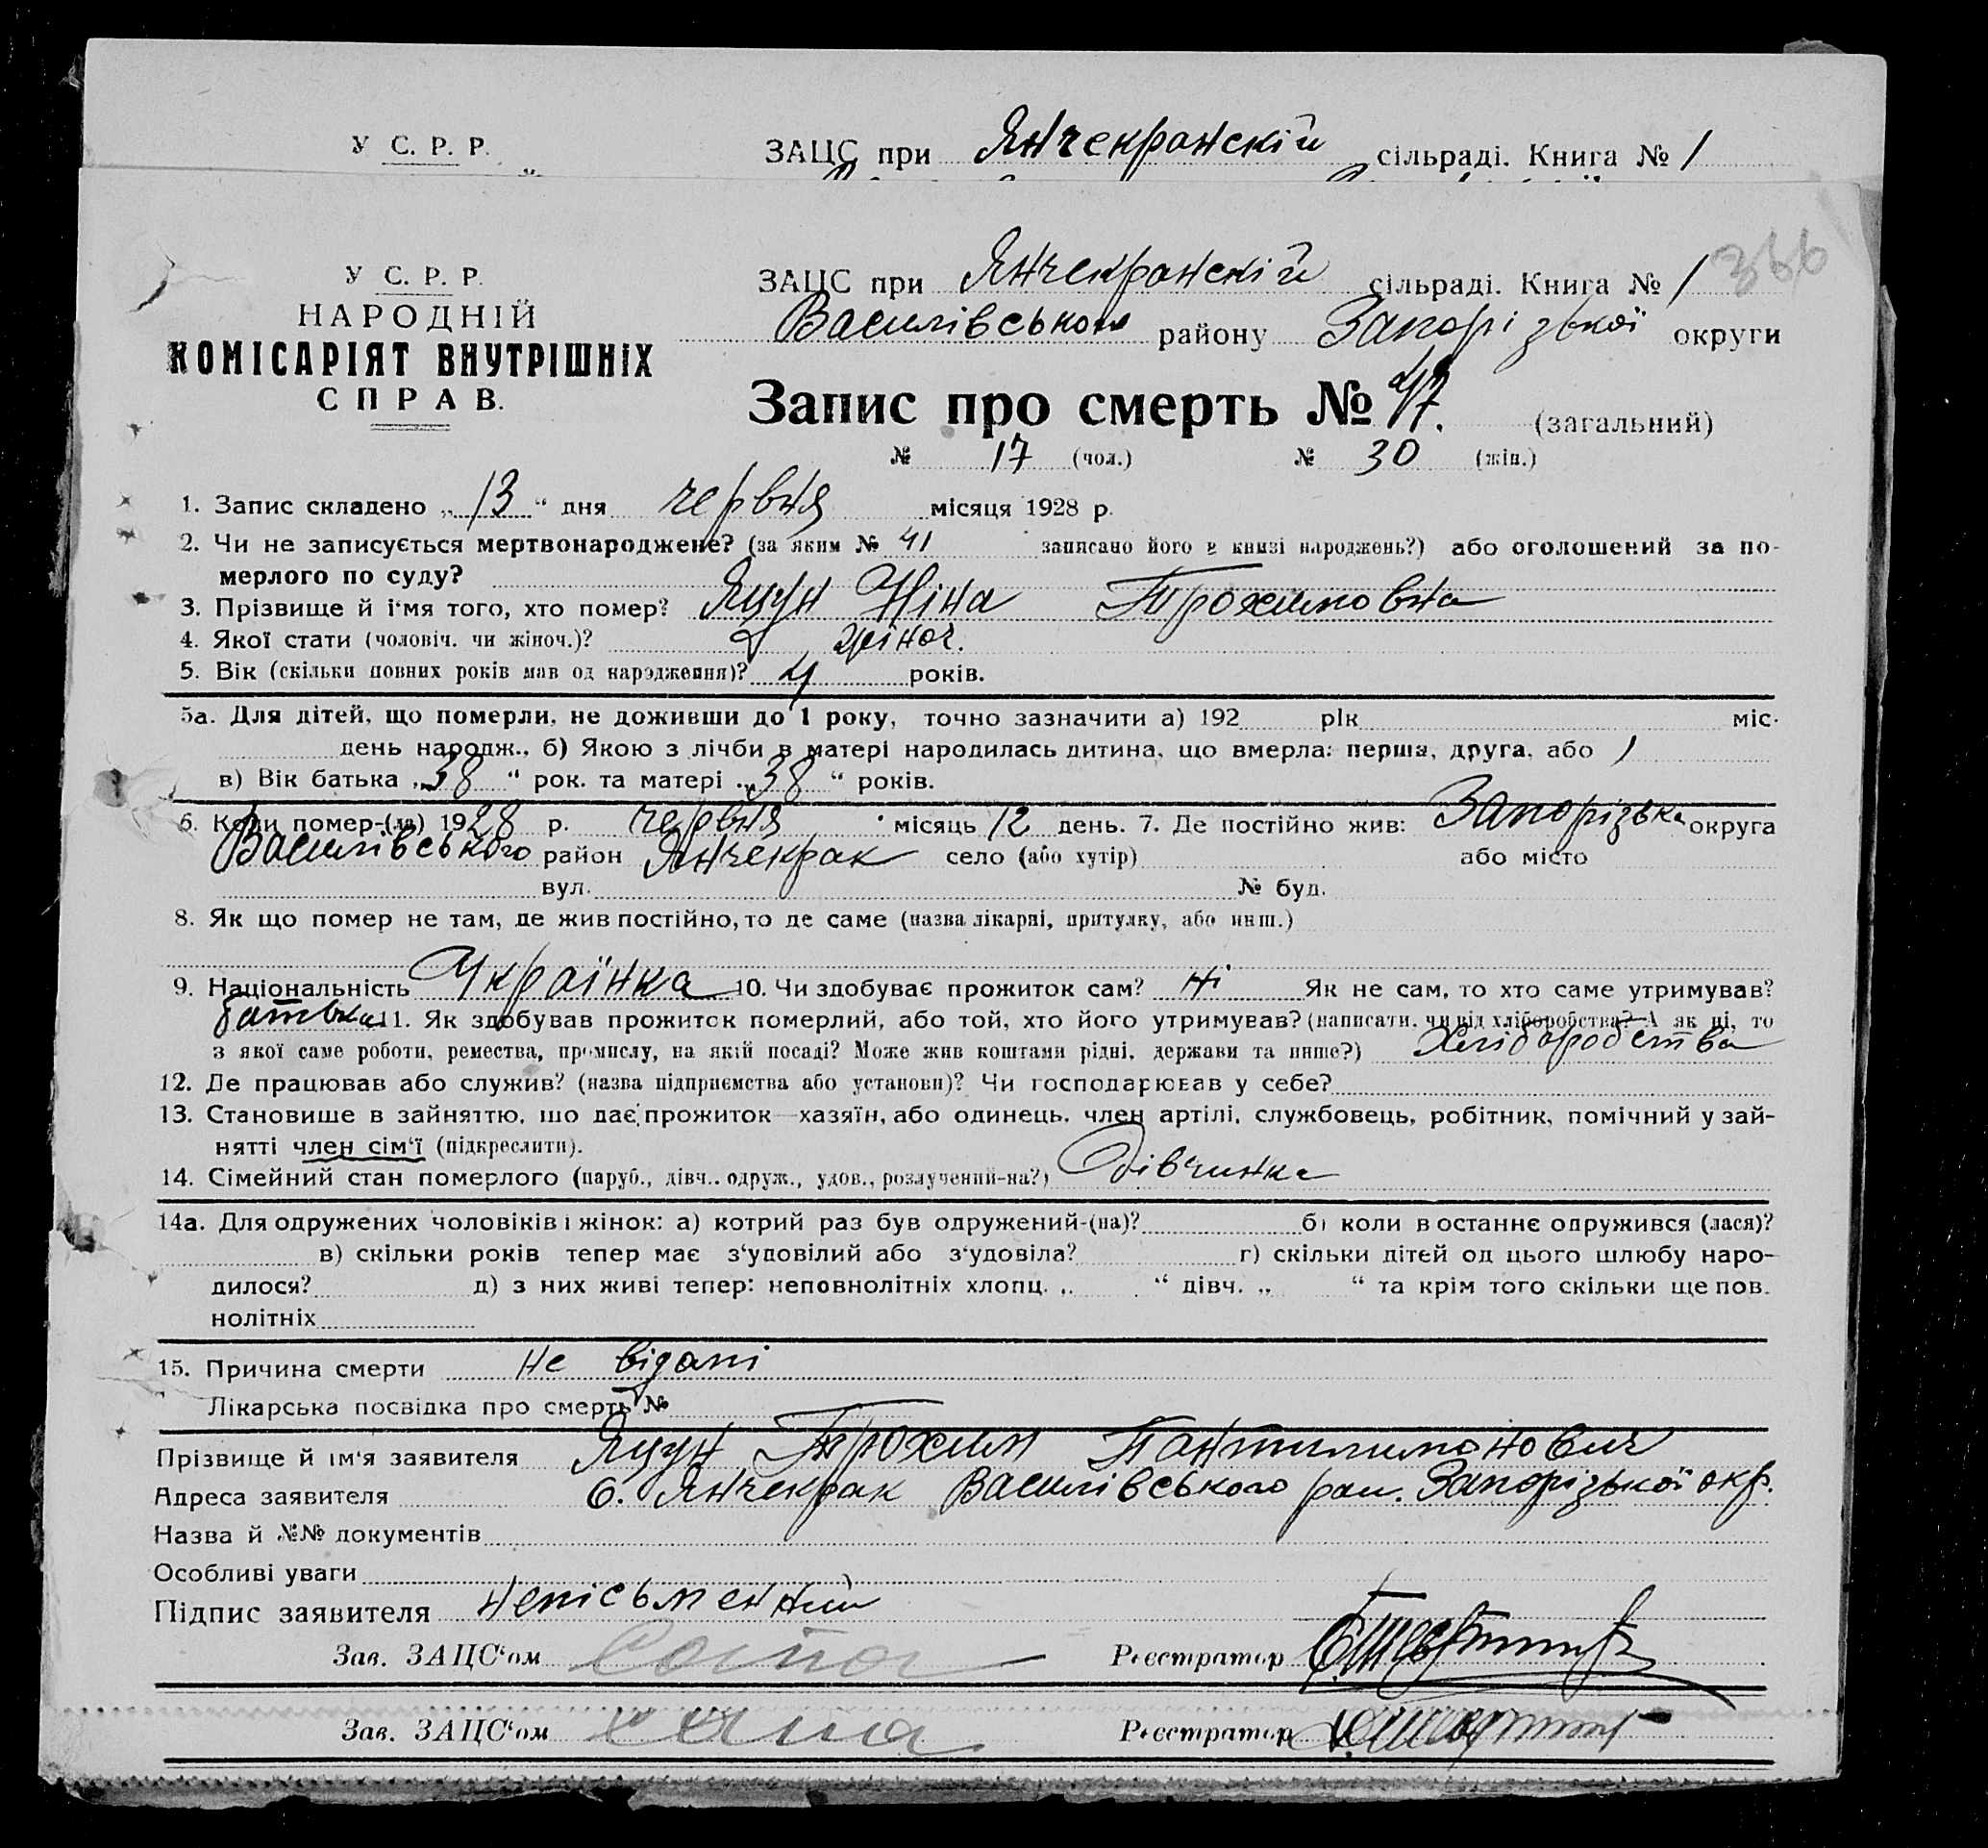 У С. Р. Р. ЗАЦС при Янчекранскій сільраді. Книга № 1
У С. Р. Р. ЗАЦС при Янчекранскій сільраді. Книга № 1 366
НАРОДНІЙ Василівського району Запорізької округи
КОМІСАРІЯТ ВНУТРІШНІХ
СПРАВ. Запис про смерть № 47. (загальний)
№ 17 (чол.) № 30 (жін.)
1. Запис складено „13“ дня червня місяця 1928 р.
2. Чи не записується мертвонароджене? (за яким № 41 записано його в книзі народжень?) або оголошений за по-
мерлого по суду?
3. Прізвище й і‘мя того, хто помер? Яцун Ніна Трохимовна
4. Якої стати (чоловіч. чи жіноч.)? жіноч.
5. Вік (скільки повних років мав од народження)? 4 років.
5а. Для дітей, що померли, не доживши до 1 року, точно зазначити а) 192 рік міс.
день народж., б) Якою з лічби в матері народилась дитина, що вмерла: перша, друга, або 1
в) Вік батька „38“ рок. та матері „38“ років.
6. Коли помер-(ла) 1928 р. червня місяць 12 день. 7. Де постійно жив: Запорізька округа
Василівського район Янчекрак село (або хутір) або місто
вул. № буд.
8. Як що помер не там, де жив постійно, то де саме (назва лікарні, притулку, або инш.)
9. Національність Українка 10. Чи здобуває прожиток сам? ні Як не сам, то хто саме утримував?
батька 11. Як здобував прожиток померлий, або той, хто його утримував? (написати, чи від хліборобства? А як ні, то
з якої саме роботи, ремества, промислу, на якій посаді? Може жив коштами рідні, держави та инше?) Хліборобства
12. Де працював або служив? (назва підприємства або установи)? Чи господарював у себе?
13. Становище в зайняттю, що дає прожиток—хазяїн, або одинець, член артілі, службовець, робітник, помічний у зай-
нятті член сім‘ї (підкреслити).
14. Сімейний стан померлого (паруб., дівч., одруж., удов., розлучений-на?) Дівчинка
14а. Для одружених чоловіків і жінок: а) котрий раз був одружений-(на)? б) коли в останнє одружився (лася)?
в) скільки років тепер має з‘удовілий або з‘удовіла? г) скільки дітей од цього шлюбу наро-
дилося? д) з них живі тепер: неповнолітніх хлопц. „ “ дівч. „ “ та крім того скільки ще пов.
нолітніх
15. Причина смерти не відомі
Лікарська посвідка про смерть №
Прізвище й ім‘я заявителя Яцун Трохим Пантилимонович
Адреса заявителя с. Янчекрак Василівського рай. Запорізької окр.
Назва й №№ документів
Особливі уваги
Підпис заявителя непісьменний
Зав. ЗАЦС‘ом Реєстратор
Зав. ЗАЦС‘ом Реєстратор